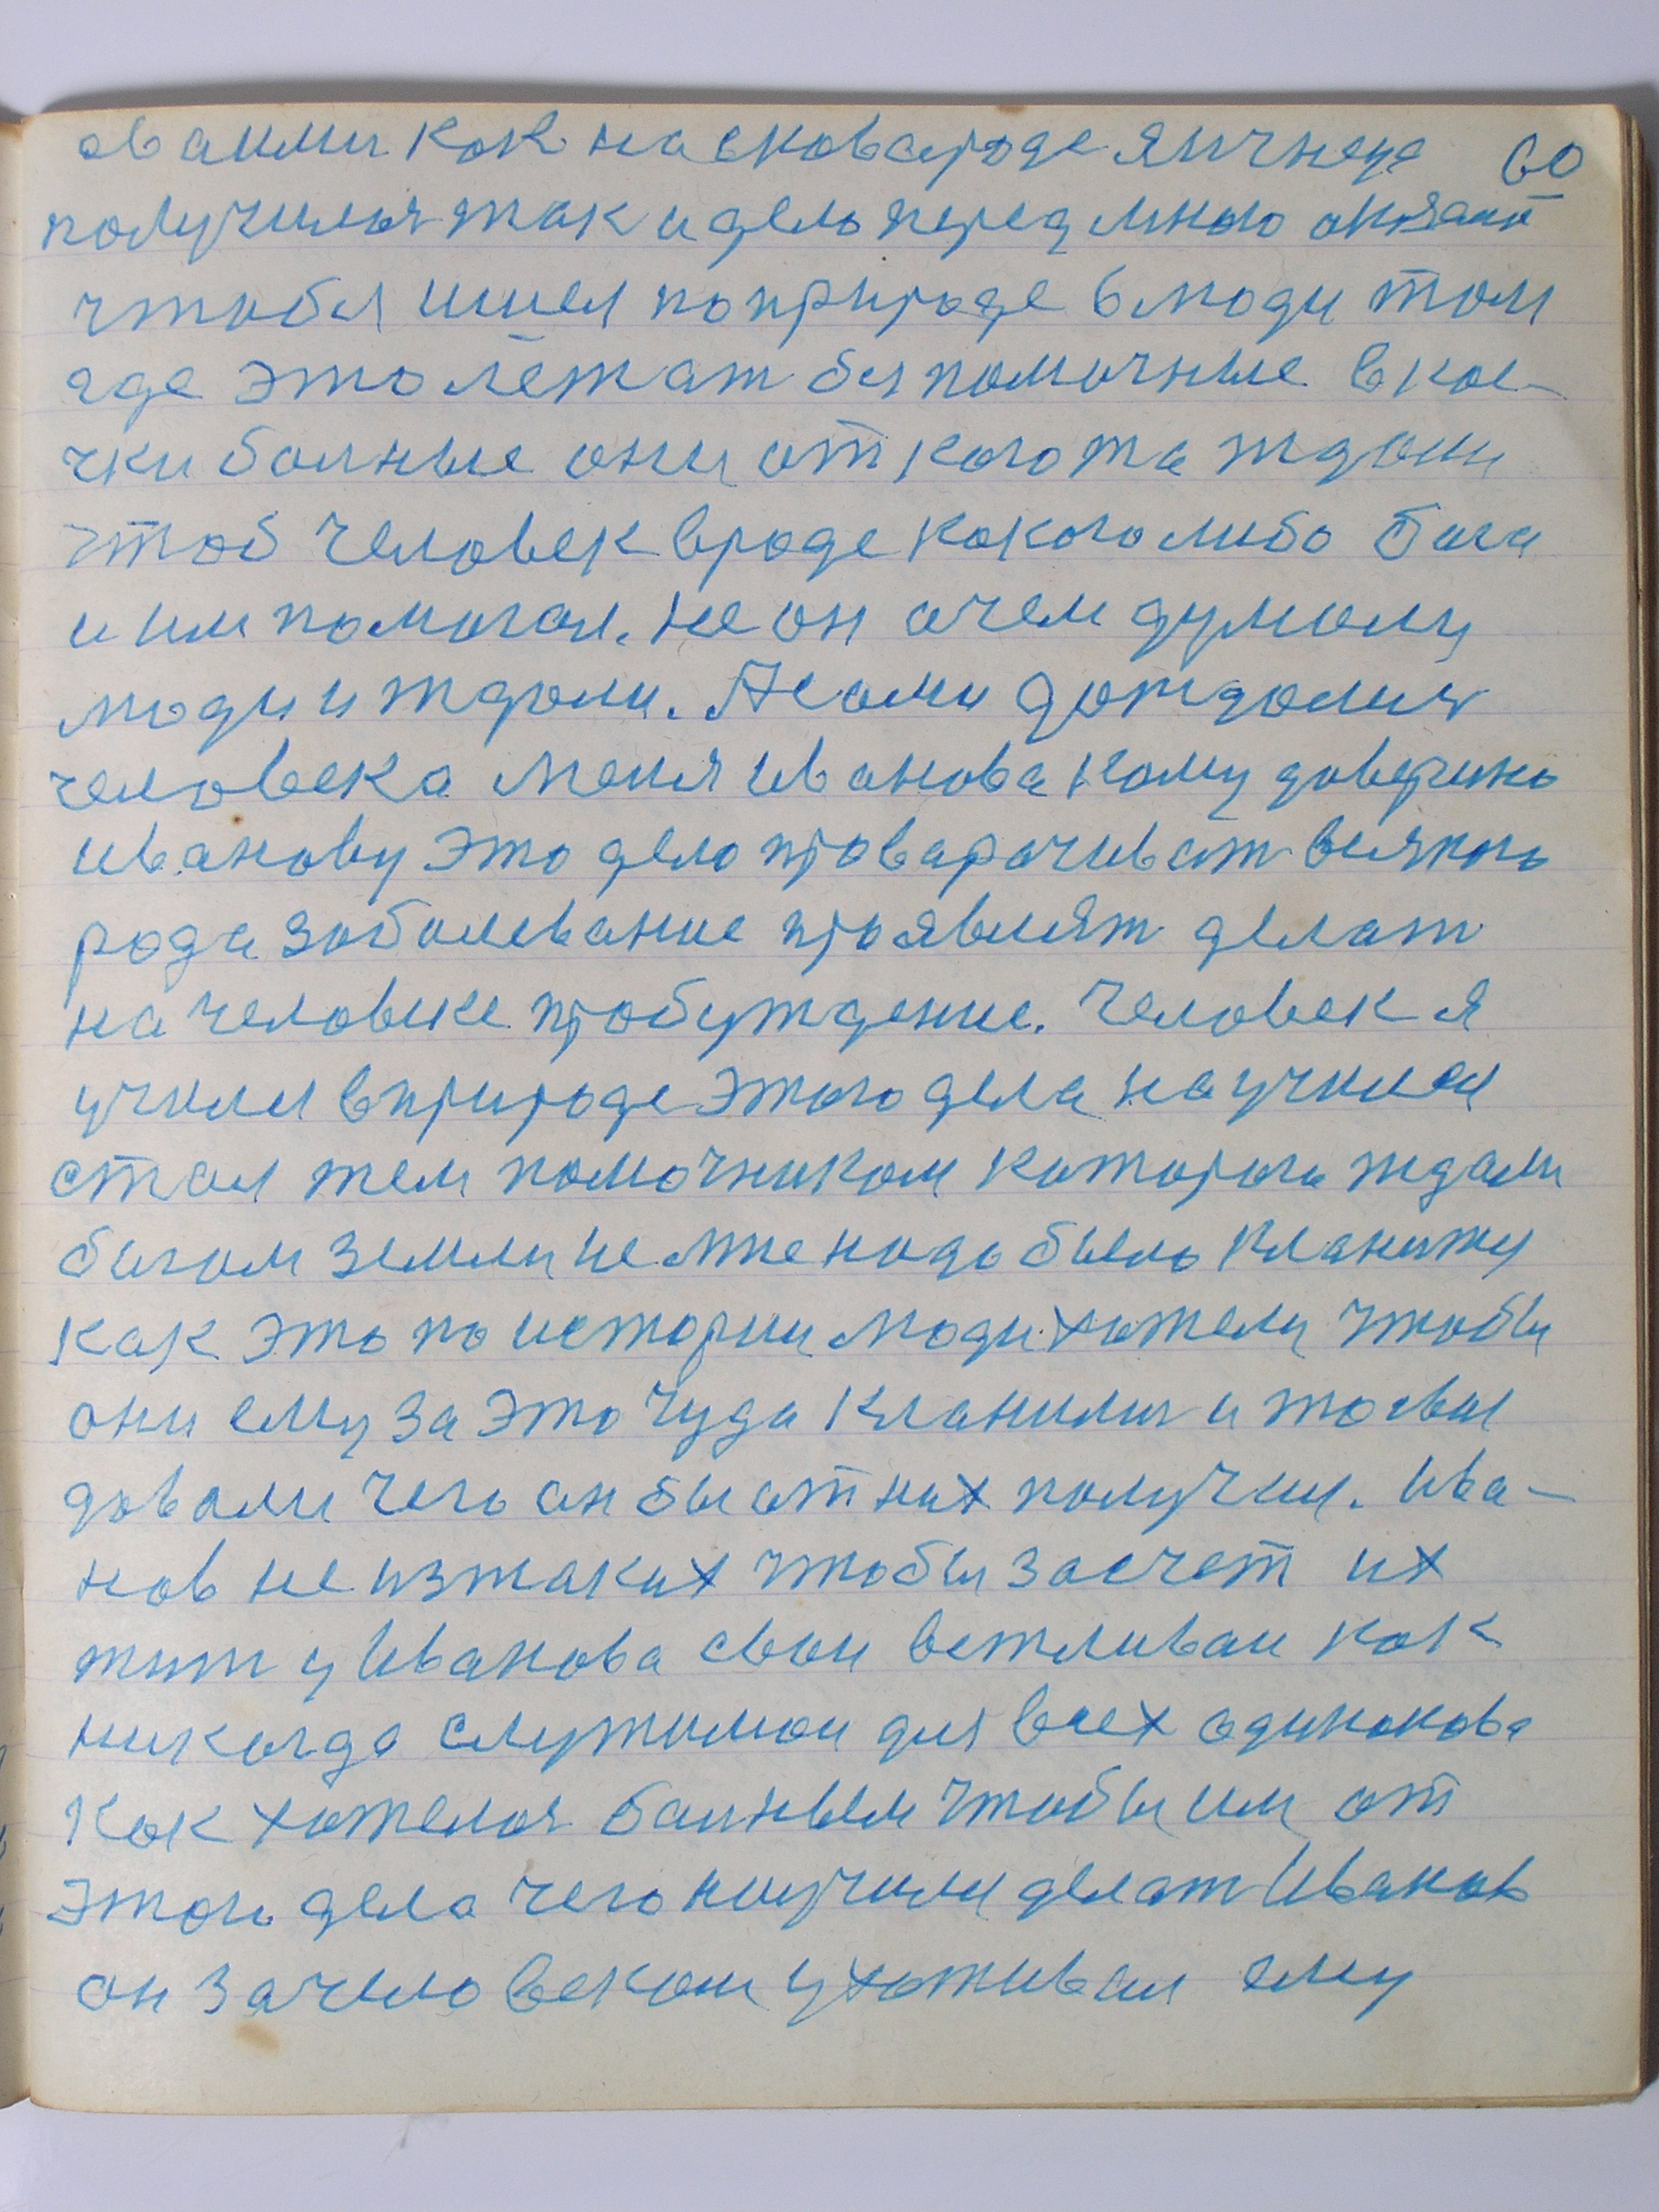 как на сковароде яичнеца 60
получилья так и дело перед мною
чтобы шшел по природе в люди там
где это лежат беспомочные в кое-
чки болные они от когото ждали
чтоб человек вроде кокоголибо бога
и им помогал. не он очем думоли
люди и ждоли. Я сами дождолися
человека меня иванова кому доверино
иванову это дело проварачиват всякого
рода заболевание проявлят делат
на человеке пробуждение. Человек я
училса в природе этого дела научился
стал тем помочником которого ждали
богом земли не мне нодо было кланижу
как это по истории люди хотели чтобы
они ему за это чуда кланились и
довали чего он бы от них получил. Ива-
нов не из таких чтобы засчет их
жит у Иванова свои вежливаи как
никогда служимои для всех одинокова
Как хотелоя болным чтобы им от
этого дела чего научился делат Иванов
он за человеком ухаживал ему